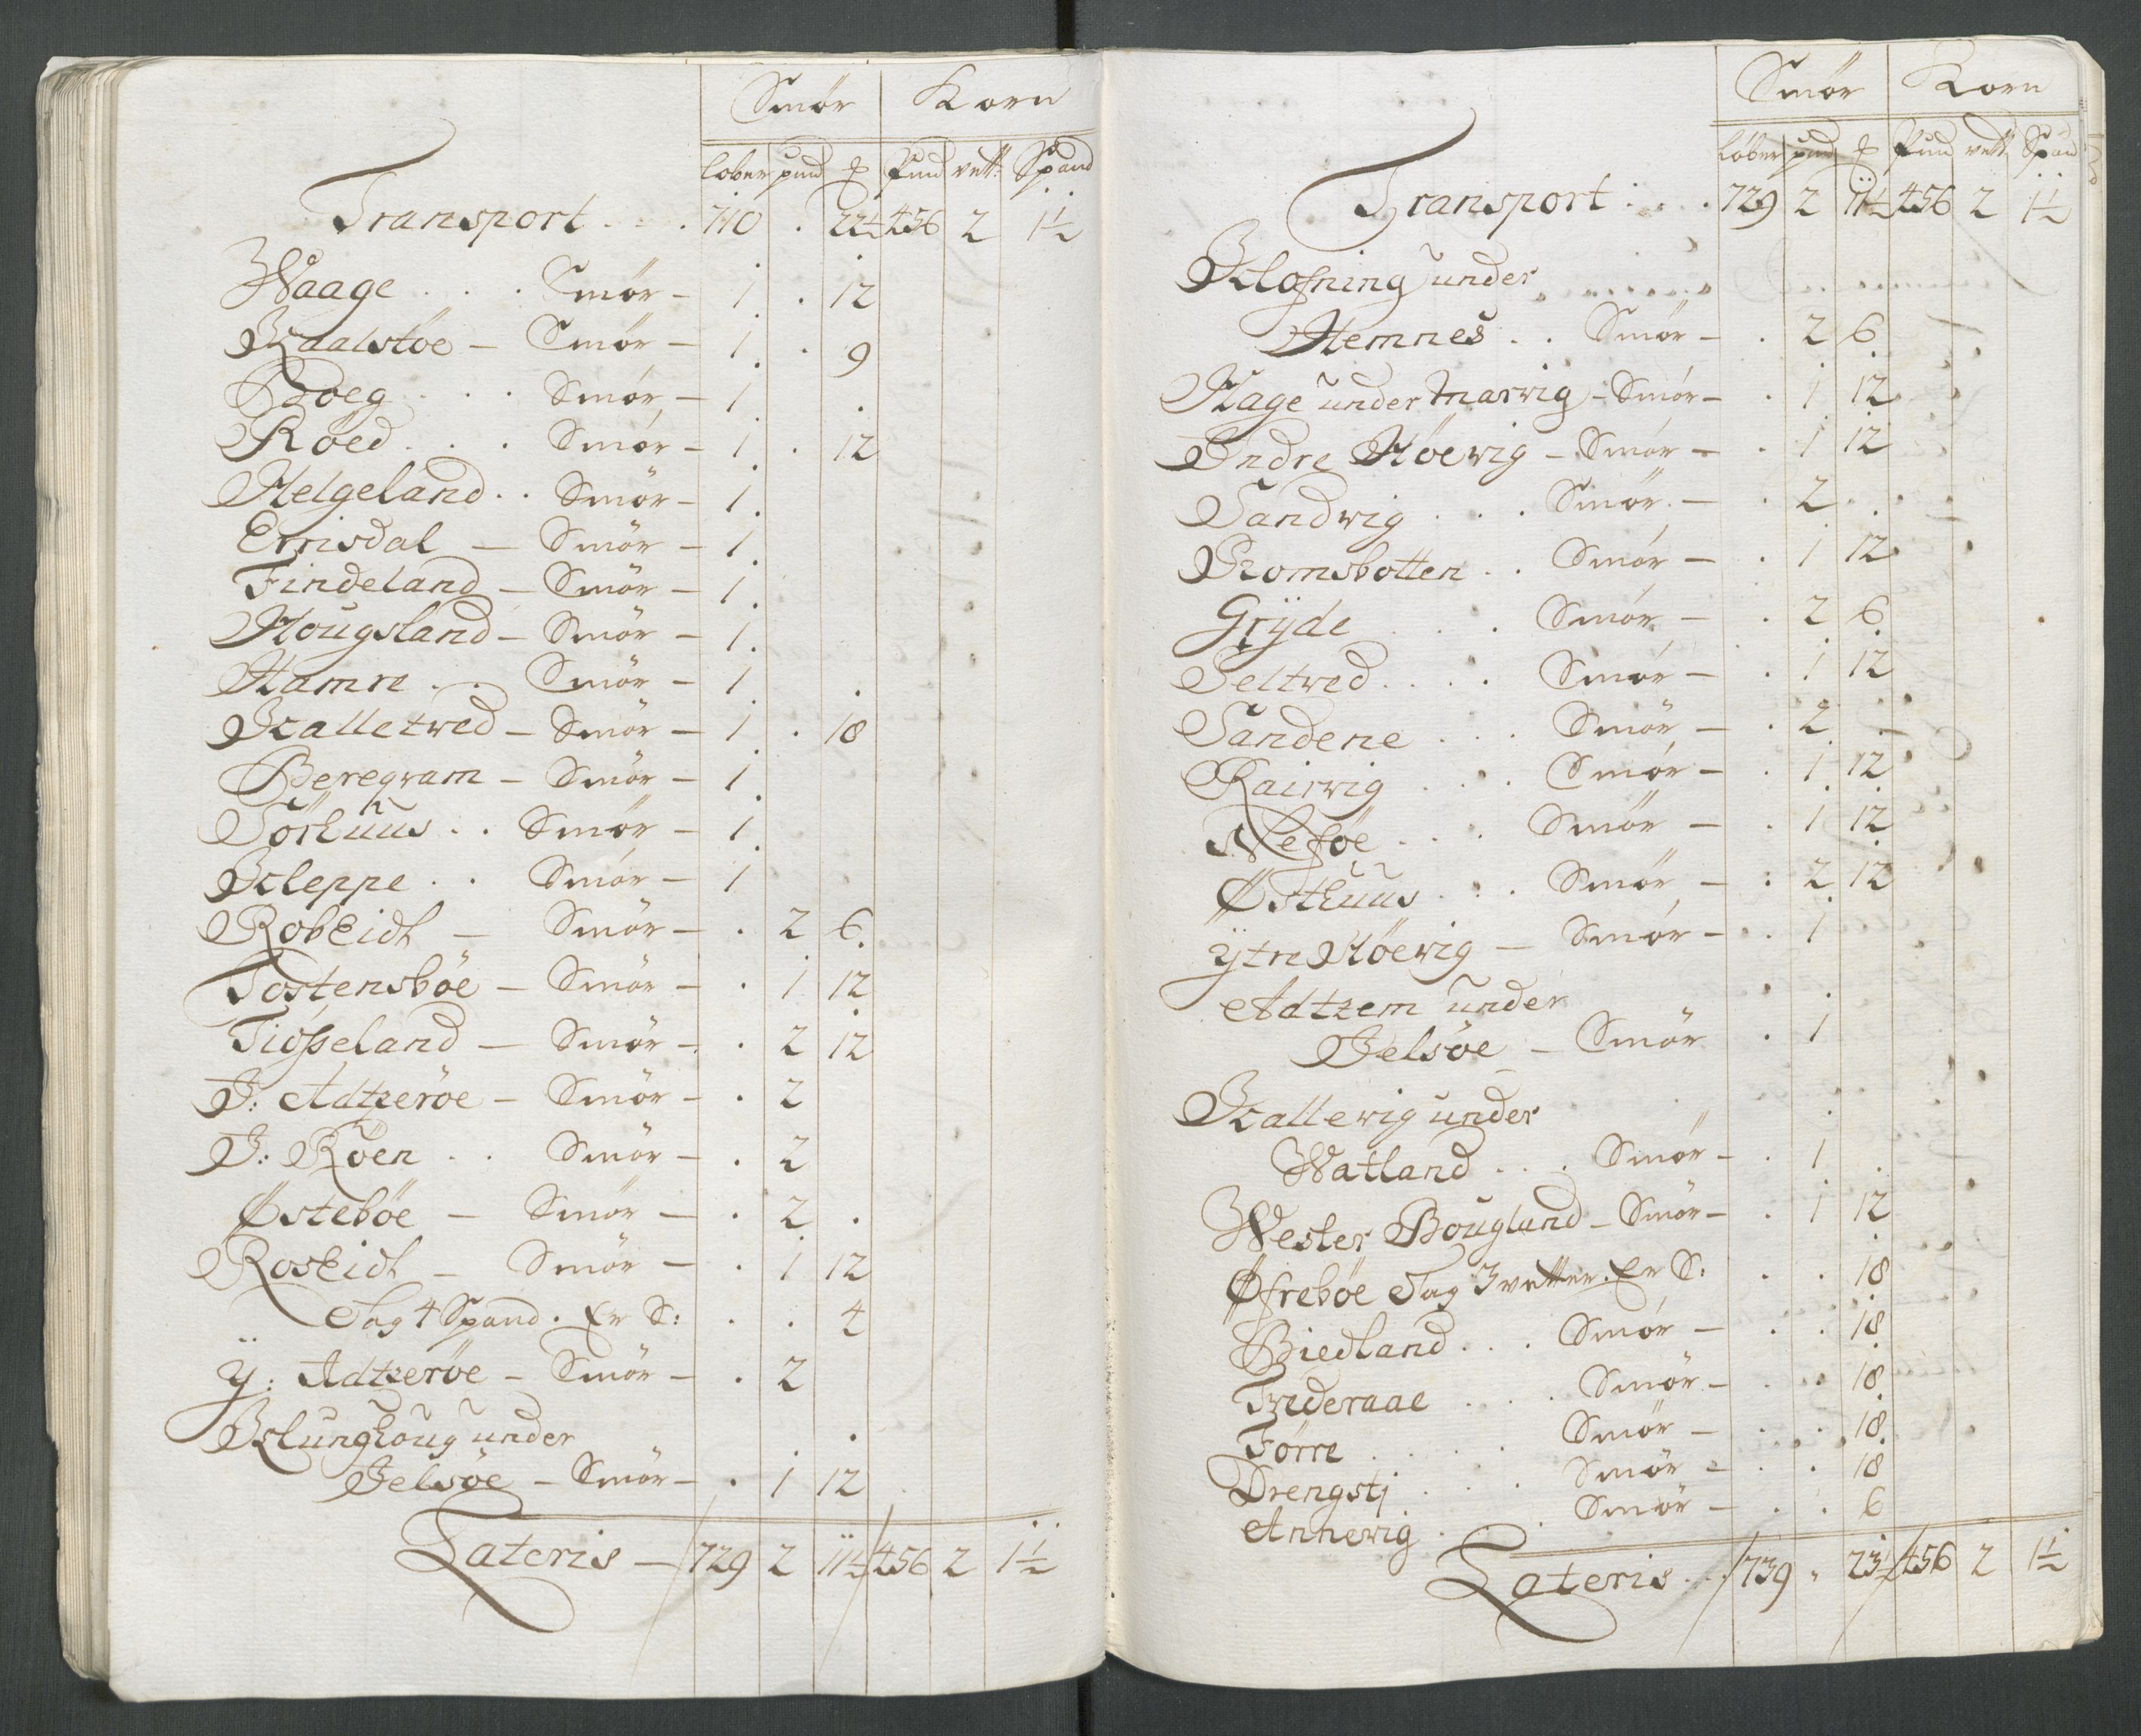 Smör Korn
lober pund ℔ Pund vett: Spand
Transport . . . 710 . 22½ 456 2 1½
Waage . . . Smör – 1 . 12
Kaalstöe – Smör – 1 . 9
Boeg . . . Smör – 1
Röed . . . Smör – 1 . 12
Helgeland . . Smör – 1
Errisdal – Smör – 1
Findeland – Smör – 1
Hougsland – Smör – 1
Hamre . . Smör – 1
Kalletved – Smör – 1 . 18
Beregvam – Smör – 1
Sörhuus . . Smör – 1
Kleppe . . Smör – 1
Robeidh – Smör – . 2 6
Tostensböe – Smör – . 1 12
Tiösseland – Smör – . 2 12
J: Adtzeröe – Smör – . 2
J: Röen . . Smör – . 2
Østeböe – Smör – . 2
Roseidh – Smör – . 1 12
Tag 4 Spand. Er S: . . 4
Ÿ: Adtzeröe – Smör – . 2
Klunghoug under
Jelsöe – Smör – . 1 12
Lateris – 729 2 11½ 456 2 1½
Smör Korn
lober pund ℔ Pund vett: Spand
Transport . . . 729 2 11½ 456 2 1½
Klofning under
Hemnes . . Smör – . 2 6
Hage under Marvig – Smör – . 1 12
Indre Höevig – Smör – . 1 12
Sandvig . . . Smör – . 2
Romsbotten . . Smör – . 1 12
Grÿde . . . Smör – . 2 6
Teltved . . . Smör – . 1 12
Sandene . . . Smör – . 2
Rairvig . . . Smör – . 1 12
Nesöe . . . Smör – . 1 12
Østhuus . . . Smör – . 2 12
Ÿtre Höevig – Smör – . 1
Adtzem under
Jelsöe – Smör . 1
Kallevig under
Watland . . . Smör – . 1
Wester Bougland – Smör – . 1 12
Øfreböe Tag 3 vetter. Er S: . . 18
Biedland . . . Smör – . . 18
Trederaae . . . Smör – . . 18
Förre . . . . Smör – . . 18
Drengstj . . . Smör – . . 18
Annevig . . . Smör – . . 6
Lateris . . . 739 . 23½ 456 2 1½